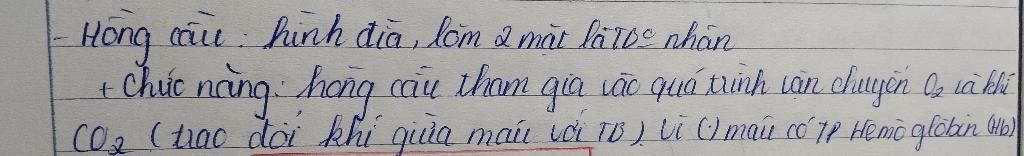 - Hồng cầu: hình đĩa, lõm 2 mặt là TB⁰ nhân
+ Chức năng: hồng cầu tham gia vào quá trình vận chuyển O₂ và khí
CO₂ (trao đổi khí giữa máu với TB) vì (.) máu có TP Hêmôglôbin (Hb)